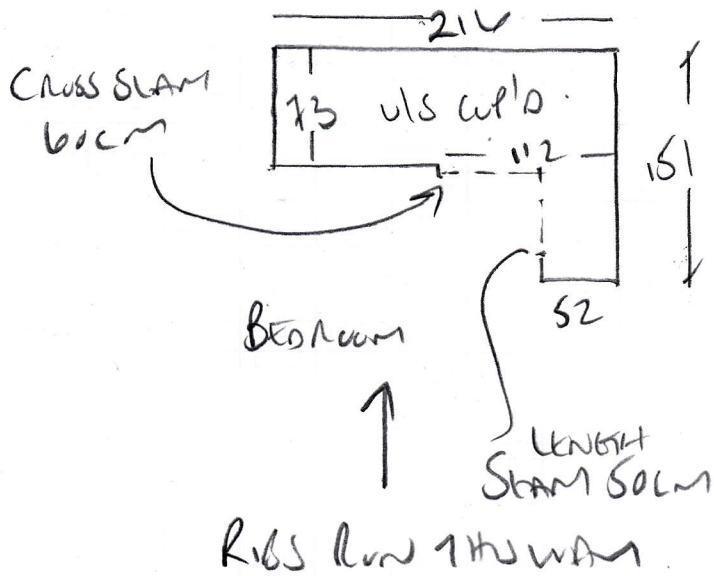 216
CROSS SEAM
60CM
73 U/S CUP'D.
112
151
52
BEDROOM
LENGTH
SEAM 50CM
RIBS RUN THIS WAY